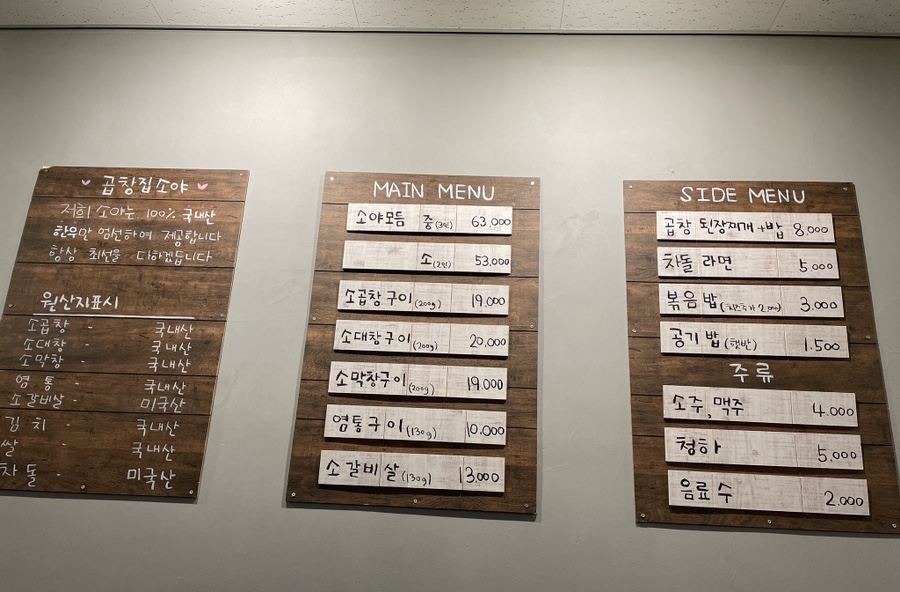 곱창집소야
저희 소야는 100% 국내산
한우만 엄선하여 제공합니다
항상 최선을 다하겠습니다
원산지표시
소곱창 - 국내산
소대창 - 국내산
소막창 - 국내산
염통 - 국내산
소갈비살 - 미국산
김치 - 국내산
쌀 - 국내산
차돌 - 미국산
MAIN MENU
소야모듬 중(3인) 63,000
소(2인) 53,000
소곱창구이(200g) 19,000
소대창구이(200g) 20,000
소막창구이(200g) 19,000
염통구이(130g) 10,000
소갈비살(130g) 13,000
SIDE MENU
곱창 된장찌개+밥 8,000
차돌 라면 5,000
볶음밥(치즈추가 2,000) 3,000
공기밥(햇반) 1.500
주류
소주, 맥주 4.000
청하 5,000
음료수 2.000